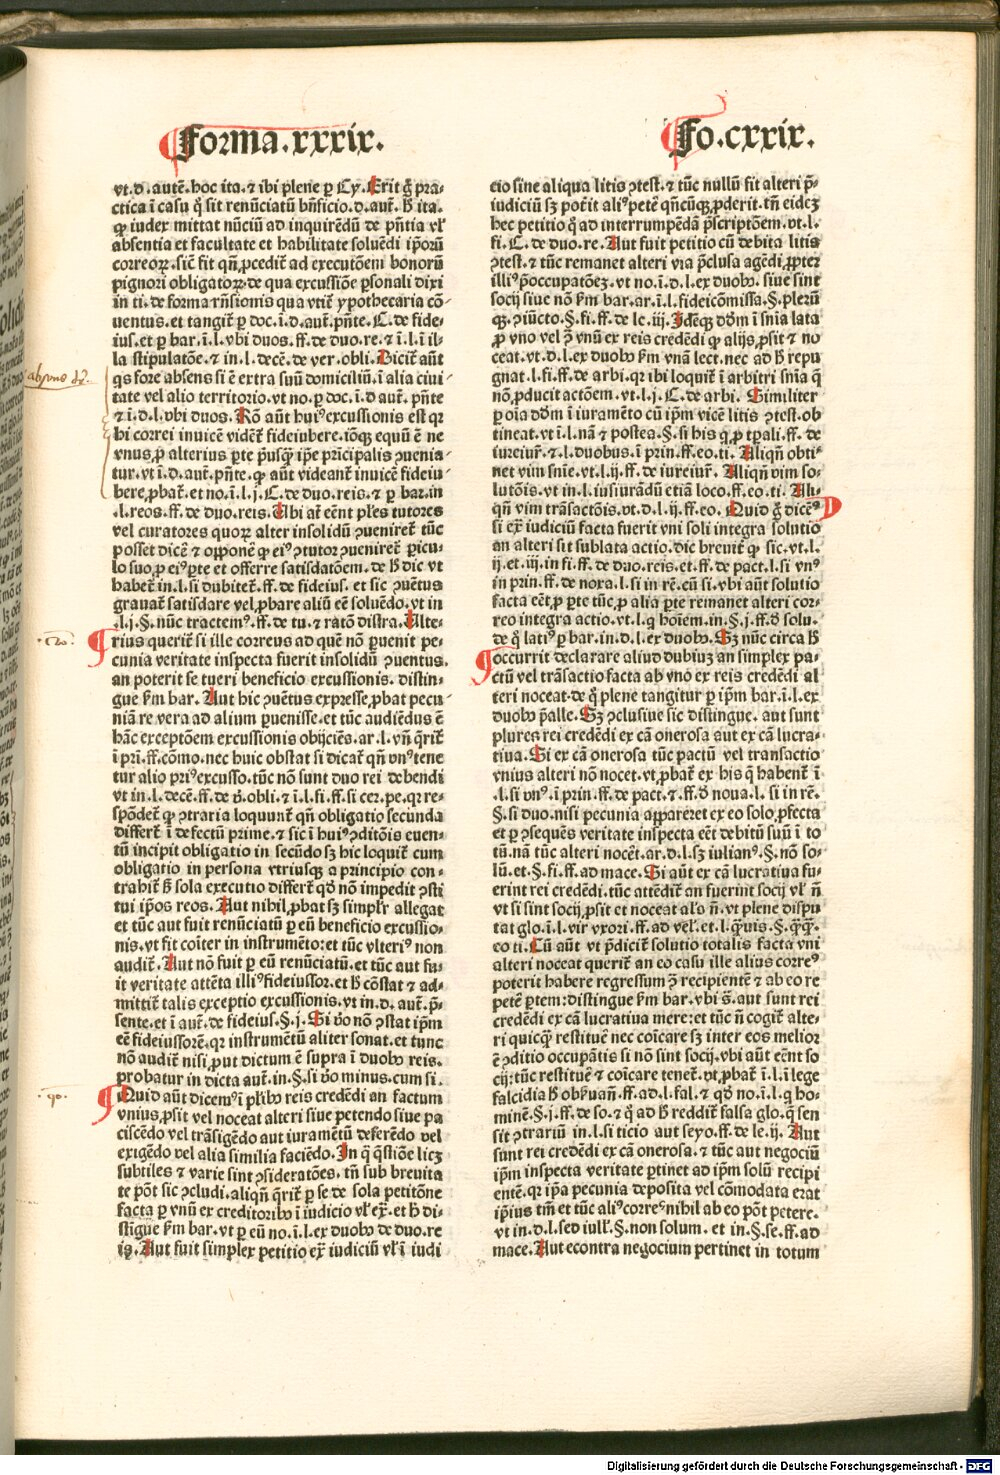 Forma.xxxix.
Fo.cxxix.
vt.d.autē.hoc ita.⁊ ibi plene ꝑ Cy.Erit g̃ pra⸗
ctica ī casu q̊ sit renūciatū bn̄ficio.d.aut̃.h̄ ita.
ꝙ iudex mittat nūciū ad inquirēdū de pn̄tia vl̃
absentia et facultate et habilitate soluēdi ip̄orū
correoꝝ.sic̄ fit qn̄ ꝓcedit̃ ad executōem bonorū
pignori obligatoꝝ.de qua excussiōe ꝑsonali dixi
in ti.de forma rn̄sionis qua vtit̃ ypothecaria cō⸗
uentus.et tangit̃ ꝑ doc.ī.d.aut̃.pn̄te.C.de fide⸗
ius.et ꝑ bar.ī.l.vbi duos.ff.de duo.re.⁊ ī.l.ī il⸗
la stipulatōe.⁊ in.l.decē.de ver.obli.Dicit̃ aūt
qs fore absens si ē extra suū domiciliū.ī alia ciui⸗
tate vel alio territorio.vt no.ꝑ doc.ī.d aut̃.pn̄te
⁊ ī.d.l.vbi duos.Rō aūt huiꝰ excussionis est qꝛ
hi correi inuicē vident̃ fideiubere.iōqꝫ equū ē ne
vnus,ꝓ alterius ꝑte ꝓusqꝫ ip̄e prīcipalis ꝯuenia⸗
tur.vt ī.d.aut̃.pn̄te.ꝙ aūt videant̃ inuicē fideiu⸗
bere,ꝓbat̃.et no.ī.l.j.C.de duo.reis.⁊ ꝑ bar.in
.l.reos.ff.de duo.reis.Vbi at̃ eēnt pl̃es tutores
vel curatores quoꝝ alter insolidū ꝯueniret̃ tūc
posset dicē ⁊ opponē ꝙ eiꝰ ꝯtutor ꝯueniret̃ ꝑicu⸗
lo suo,ꝓ eiꝰ ꝑte et offerre satisdatōem.de h̄ dic vt
habet̃ in.l.si dubitet̃.ff.de fideius.et sic ꝯuētus
grauat̃ satisdare vel,ꝓbare aliū eē soluēdo.vt in
.l.j.§.nūc tractemꝰ.ff.de tu.⁊ ratō distra.Ulte⸗
rius querit̃ si ille correus ad quē nō ꝑuenit pe⸗
cunia veritate inspecta fuerit insolidū ꝯuentus.
an poterit se tueri beneficio excussionis.distin⸗
gue ẜm bar.Aut hic ꝯuētus expresse,ꝓbat pecu⸗
niā re vera ad alium ꝑuenisse.et tūc audiēdus ē
hāc exceptōem excussionis obijciēs.ar.l.vn̄ q̄rit̃
ī pri.ff.cōmo.nec huic obstat si dicat̃ qn̄ vnꝰ tene
tur alio priꝰ excusso.tūc nō sunt duo rei debendi
vt in.l.decē.ff.de v̄.obli.⁊ ī.l.fi.ff.si cer.pe.qꝛ re⸗
spōdet̃ ꝙ ꝯtraria loquunt̃ qn̄ obligatio secunda
differt̃ ī defectū prime.⁊ sic ī huiꝰ ꝯditōis euen⸗
tū incipit obligatio in secūdo sꝫ hic loquit̃ cum
obligatio in persona vtriusqꝫ a principio con⸗
trahit̃ h̄ sola executio differt̃ qd̄ nō impedit ꝯsti
tui ip̄os reos.Aut nihil,ꝓbat sꝫ simplr̃ allegat
et tūc aut fuit renūciatū ꝑ eū beneficio excussio⸗
nis.vt fit cōiter in instrumēto:et tūc vlteriꝰ non
audit̃.Aut nō fuit ꝑ eū renūciatū.et tūc aut fu⸗
it veritate attēta illiꝰ fideiussor.et h̄ cōstat ⁊ ad⸗
mittit̃ talis exceptio excussionis.vt in.d.aut̃.p̄⸗
sente.et ī aut̃.de fideius.§.j.Si v̄o nō ꝯstat ip̄m
eē fideiussorē.qꝛ instrumētū aliter sonat.et tunc
nō audit̃ nisi,put dictum ē supra ī duobꝰ reis.
probatur in dicta aut̃.in.§.si v̄o minus.cum si.
Quid aūt dicemꝰ ī pl̃ibꝰ reis credēdi an factum
vnius,ꝓsit vel noceat alteri siue petendo siue pa
ciscēdo vel trāsigēdo aut iuramētū deferēdo vel
exigēdo vel alia similia faciēdo.In q̄ q̄stiōe licꝫ
subtiles ⁊ varie sint ꝯsideratōes.tn̄ sub breuita
te pōt sic ꝯcludi.aliqn̄ q̄rit̃ ꝑ se de sola petitōne
facta ꝑ vnū ex creditoribꝰ ī iudicio vl̃ ex̄.et h̄ di⸗
stīgue ẜm bar.vt ꝑ eū no.ī.l.ex duobꝰ de duo.re
is.Aut fuit simplex petitio ex̄ iudiciū vl̃ ī iudi
cio sine aliqua litis ꝯtest.⁊ tūc nullū fit alteri p̄⸗
iudiciū sꝫ pot̃it aliꝰ petē qn̄cūqꝫ,ꝓderit.tn̄ eideꝫ
hec petitio q̊ ad interrumpēdā p̄scriptōem.vt.l.
fi.C.de duo.re.Aut fuit petitio cū debita litis
ꝯtest.⁊ tūc remanet alteri via p̄clusa agēdi,ꝓpter
illiꝰ p̄occupatōeꝫ.vt no.ī.d.l.ex duobꝰ.siue sint
socij siue nō ẜm bar.ar.ī.l.fideicōmissa.§.plerū
qꝫ.ꝯiūcto.§.fi.ff.de le.iij.Idēqꝫ dd̄m ī sn̄ia lata
ꝓ vno vel ꝯ̄ vnū ex reis credēdi ꝙ alijs,ꝓsit ⁊ no
ceat.vt.d.l.ex duobꝰ ẜm vnā lect.nec ad h̄ repu
gnat.l.fi.ff.de arbi.qꝛ ibi loquit̃ ī arbitri sn̄ia q̄
nō,ꝓducit actōem.vt.l.j.C.de arbi.Similiter
ꝑ oīa dd̄m ī iuramēto cū ip̄m vicē litis ꝯtest.ob
tineat.vt ī.l.nā ⁊ postea.§.si his q̄,ꝓ tp̄ali.ff.de
iureiur̃.⁊.l.duobus.ī prin.ff.eo.ti.Aliqn̄ obti⸗
net vim sn̄ie.vt.l.ij.ff.de iureiur̃.Aliqn̄ vim so⸗
lutōis.vt in.l.iusiurādū etiā loco.ff.eo.ti.Ali⸗
qn̄ vim trāsactōis.vt.d.l.ij.ff.eo.Quid g̃ dicēꝰ
si ex̄ iudiciū facta fuerit vni soli integra solutio
an alteri sit sublata actio.dic breuit̃ ꝙ sic.vt.l.
ij.et.iij.in fi.ff.de duo.reis.et.ff.de pact.l.si vnꝰ
in prin.ff.de nora.l.si in rē.cū si.vbi aūt solutio
facta eēt,ꝓ ꝑte tūc,ꝓ alia ꝑte remanet alteri cor⸗
reo integra actio.vt.l.q̄ hoīem.in.§.j.ff.d̄ solu.
de q̊ latiꝰ ꝑ bar.in.d.l.ex duobꝰ.Sꝫ nūc circa h̄
occurrit declarare aliud dubiuꝫ an simplex pa⸗
ctū vel trāsactio facta ab vno ex reis credēdi al
teri noceat.de q̊ plene tangitur ꝑ ip̄m bar.ī.l.ex
duobꝰ p̄alle.Sꝫ ꝯclusiue sic distingue.aut sunt
plures rei credēdi ex cā onerosa aut ex cā lucra⸗
tiua.Si ex cā onerosa tūc pactū vel transactio
vnius alteri nō nocet.vt,ꝓbat̃ ex his q̄ habent̃ ī
.l.si vnꝰ.ī prin.ff.de pact.⁊.ff.d̄ noua.l.si in rē.
§.si duo.nisi pecunia appareret ex eo solo,ꝓfecta
et ꝑ ꝯsequēs veritate inspecta eēt debitū suū ī to
tū.nā tūc alteri nocēt.ar.d.l.sꝫ iulianꝰ.§.nō so⸗
lū.et.§.fi.ff.ad mace.Si aūt ex cā lucratiua fu⸗
erint rei credēdi.tūc attēdit̃ an fuerint socij vl̃ n̄
vt si sint socij,ꝓsit et noceat al̃s n̄.vt plene dispu
tat glo.ī.l.vir vxori.ff.ad vel̃.et.l.q̄uis.§.q̄qꝫ.
eo ti.Cū aūt vt p̄dicit̃ solutio totalis facta vni
alteri noceat querit̃ an eo casu ille alius correꝰ
poterit habere regressum ꝯ̄ recipientē ⁊ ab eo re
petē ꝑtem:distingue ẜm bar.vbi s̄.aut sunt rei
credēdi ex cā lucratiua mere:et tūc n̄ cogit̃ alte⸗
ri quicqꝫ restituē nec cōicare sꝫ inter eos melior
ē ꝯditio occupātis si nō sint socij.vbi aūt eēnt so
cij:tūc restituē ⁊ cōicare tenet̃.vt,ꝓbat̃ ī.l.ī lege
falcidia h̄ obẜuan̄.ff.ad.l.fal.⁊ qd̄ no.ī.l.q̄ ho⸗
minē.§.j.ff.de so.⁊ q̊ ad h̄ reddit̃ falsa glo.q̄ sen
sit ꝯtrariū in.l.si ticio aut seyo.ff.de le.ij.Aut
sunt rei credēdi ex cā onerosa.⁊ tūc aut negociū
ip̄m inspecta veritate ꝑtinet ad ip̄m solū recipi
entē.qꝛ ip̄a pecunia deposita vel cōmodata erat
ip̄ius tm̄ et tūc aliꝰ correꝰ nihil ab eo pōt petere.
vt in.d.l.sed iull̃.§.non solum.et in.§.se.ff.ad
mace.Aut econtra negocium pertinet in totum
Digitalisierung gefördert durch die Deutsche Forschungsgemeinschaft - DFG